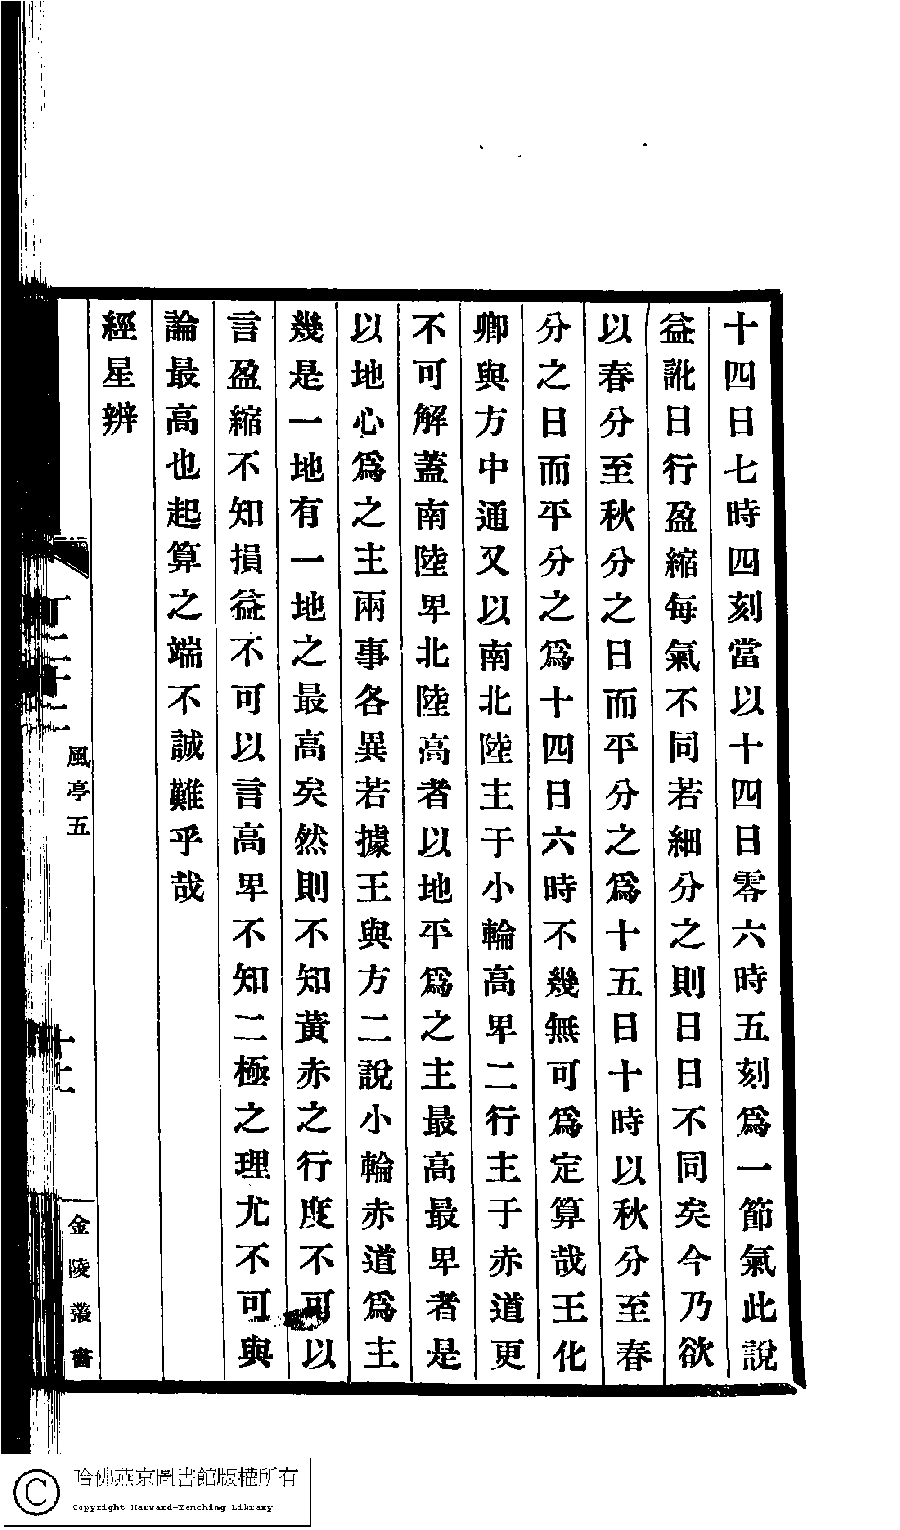 十四日七時四刻當以十四日零六時五刻爲一節氣此說
益訛日行盈縮每氣不同若細分之則日日不同矣今乃欲
以春分至秋分之日而平分之爲十五日十時以秋分至春
分之日而平分之爲十四日六時不幾無可爲定算哉王化
卿與方中通又以南北陸主于小輪高卑二行主于赤道更
不可解蓋南陸卑北陸高者以地平爲之主最高最卑者是
以地心爲之主兩事各異若據王與方二說小輪赤道爲主
幾是一地有一地之最高矣然則不知黃赤之行度不可以
言盈縮不知損益不可以言高卑不知二極之理尤不可與
論最高也起算之端不誠難乎哉
經星辨
風亭五
金陵叢書
哈佛燕京圖書館版權所有
Copyright Harvard-Yenching Library